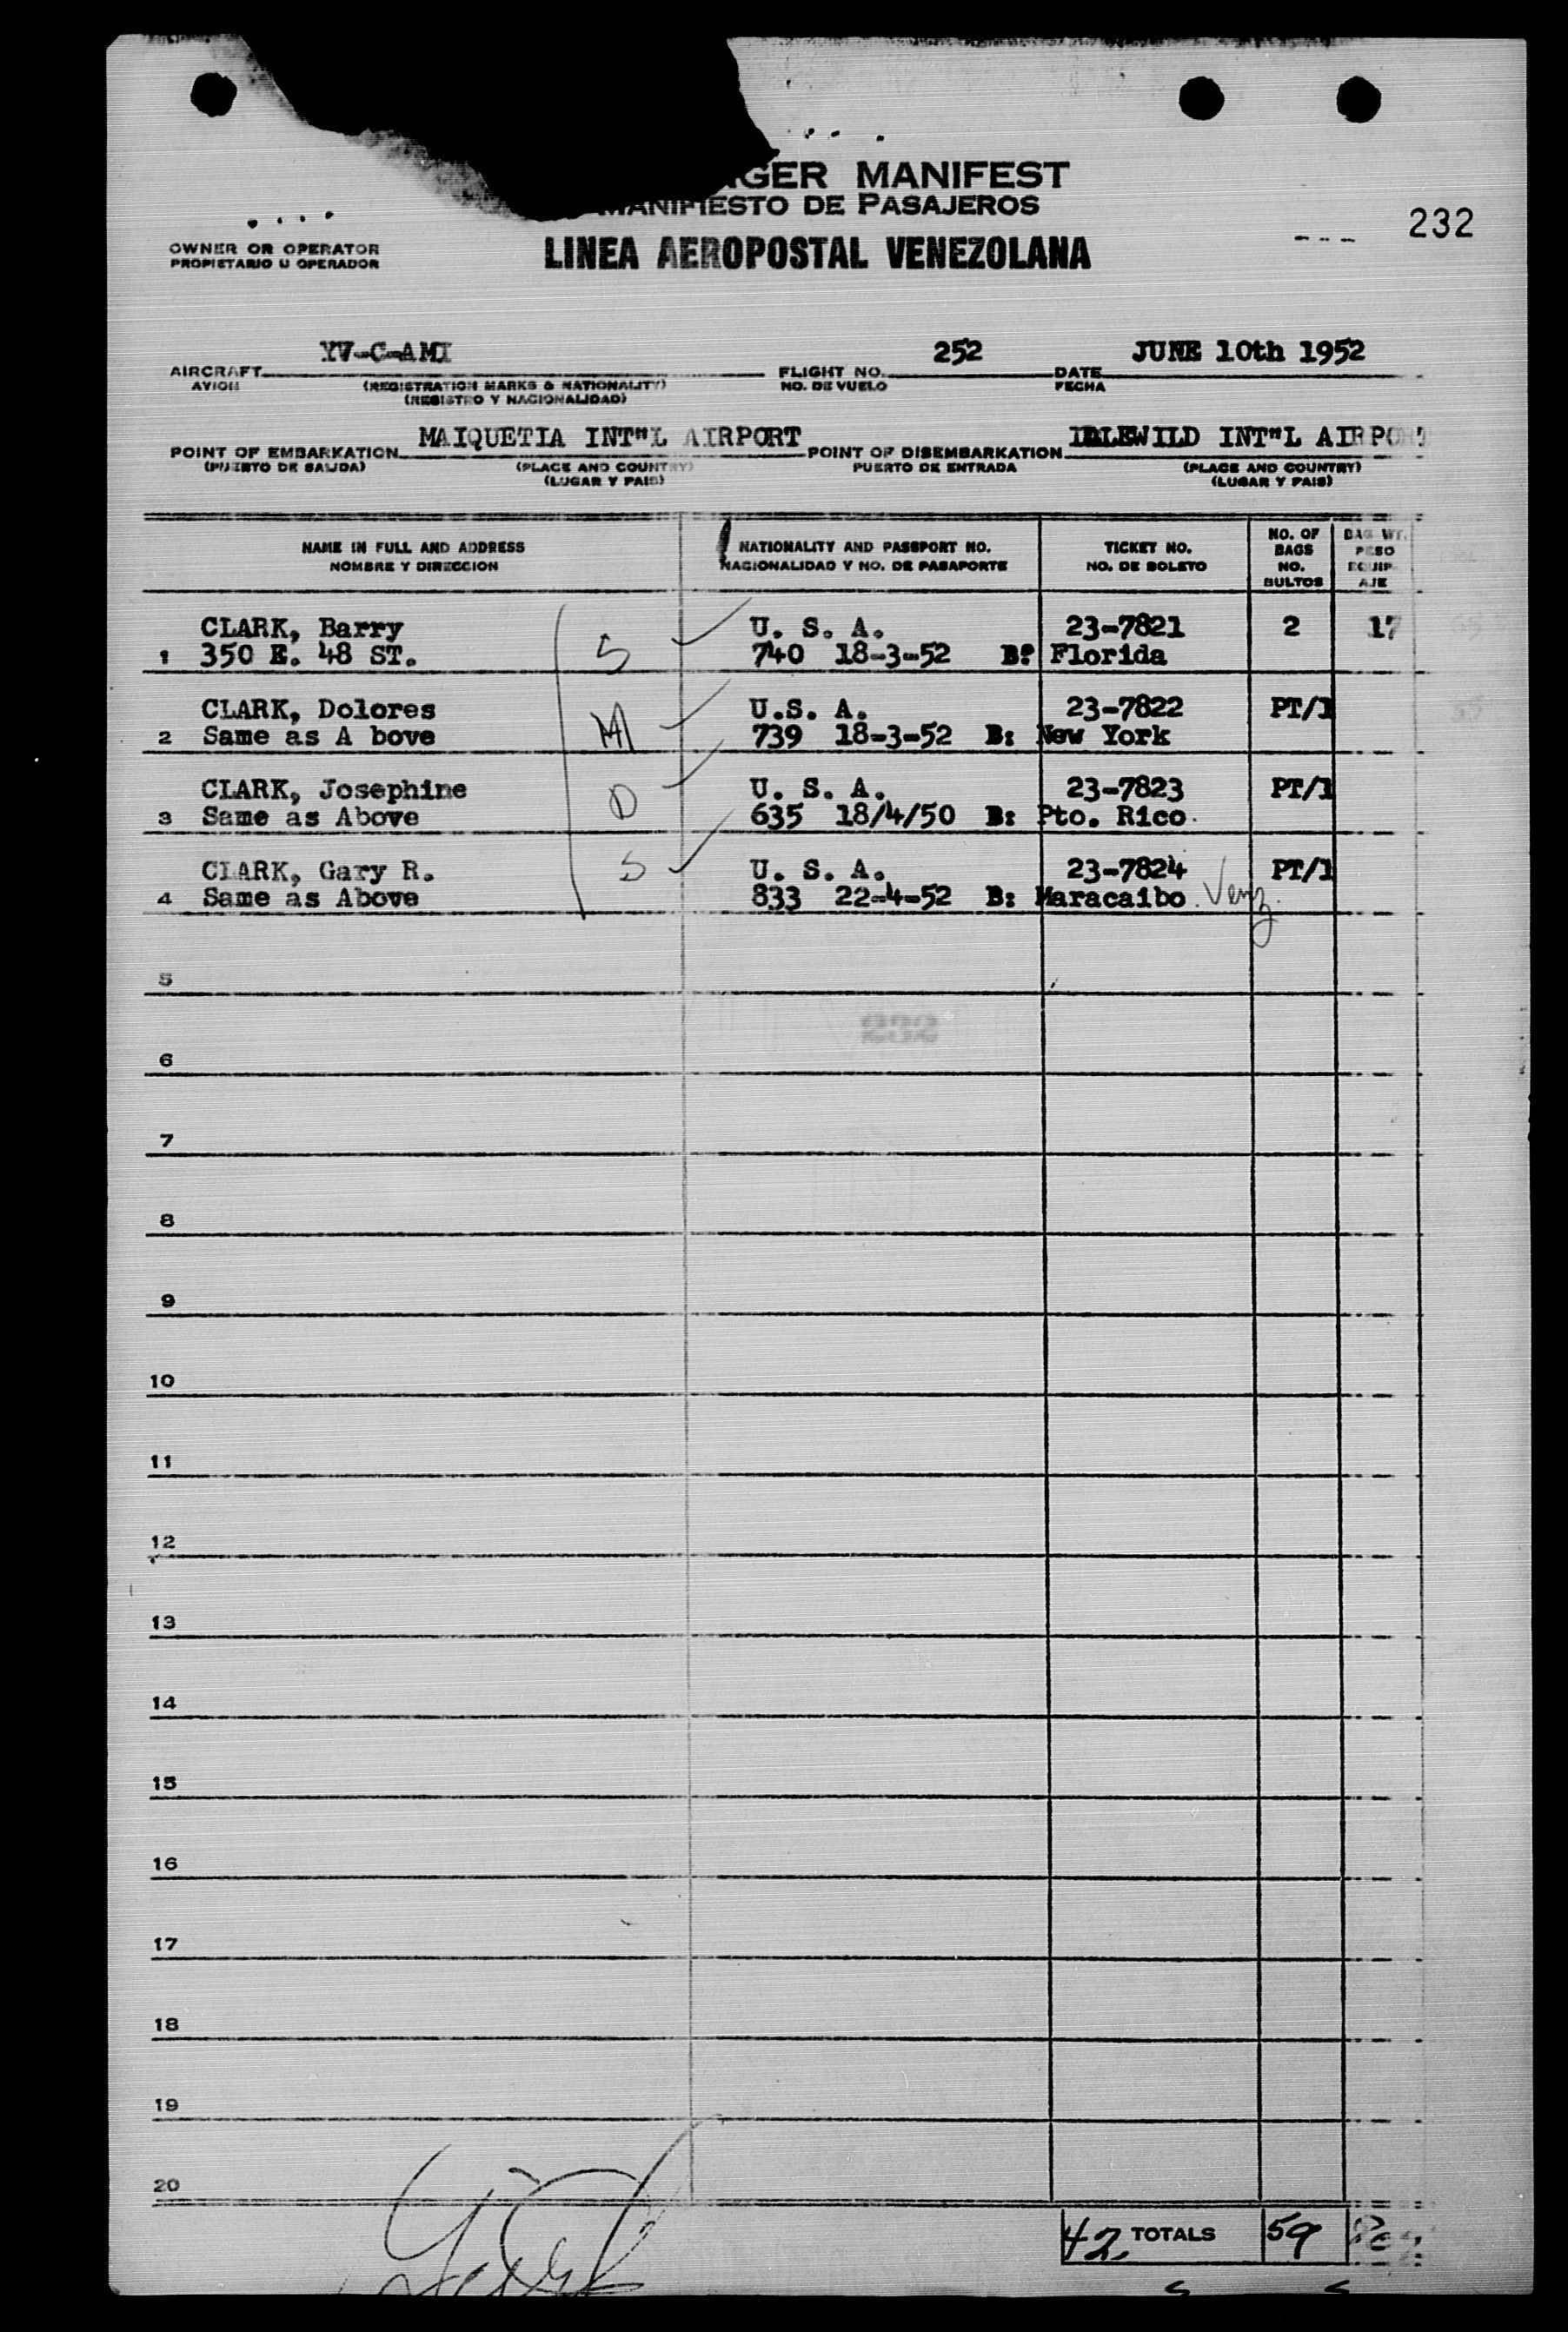 MANIFEST
MANIFIESTO DE PASAJEROS
232
OWNER OR OPERATOR
PROPIETARIO U OPERADOR
LINEA AEROPOSTAL VENEZOLANA
YV-C-AMI 252 JUNE 10th 1952
AIRCRAFT FLIGHT NO. DATE
AVION (REGISTRATION MARKS & NATIONALITY) NO. DE VUELO FECHA
(REGISTRO Y NACIONALIDAD)
MAIQUETIA INT"L AIRPORT IDLEWILD INT"L AIRPORT
POINT OF EMBARKATION POINT OF DISEMBARKATION
(PUERTO DE SALIDA) (PLACE AND COUNTRY) PUERTO DE ENTRADA (PLACE AND COUNTRY)
(LUGAR Y PAIS) (LUGAR Y PAIS)
NAME IN FULL AND ADDRESS NATIONALITY AND PASSPORT NO. TICKET NO. NO. OF BAGS BAG WT.
NOMBRE Y DIRECCION NACIONALIDAD Y NO. DE PASAPORTE NO. DE BOLETO NO. BULTOS PESO EQUIP-AJE
CLARK, Barry U. S. A. 23-7821 2 17
1 350 E. 48 ST. S 740 18-3-52 B: Florida
CLARK, Dolores U.S. A. 23-7822 PT/1
2 Same as A bove M 739 18-3-52 B: New York
CLARK, Josephine U. S. A. 23-7823 PT/1
3 Same as Above D 635 18/4/50 B: Pto. Rico.
CLARK, Gary R. S U. S. A. 23-7824 PT/1
4 Same as Above 833 22-4-52 B: Maracaibo. Venz.
5
6
7
8
9
10
11
12
13
14
15
16
17
18
19
20
42 TOTALS 59